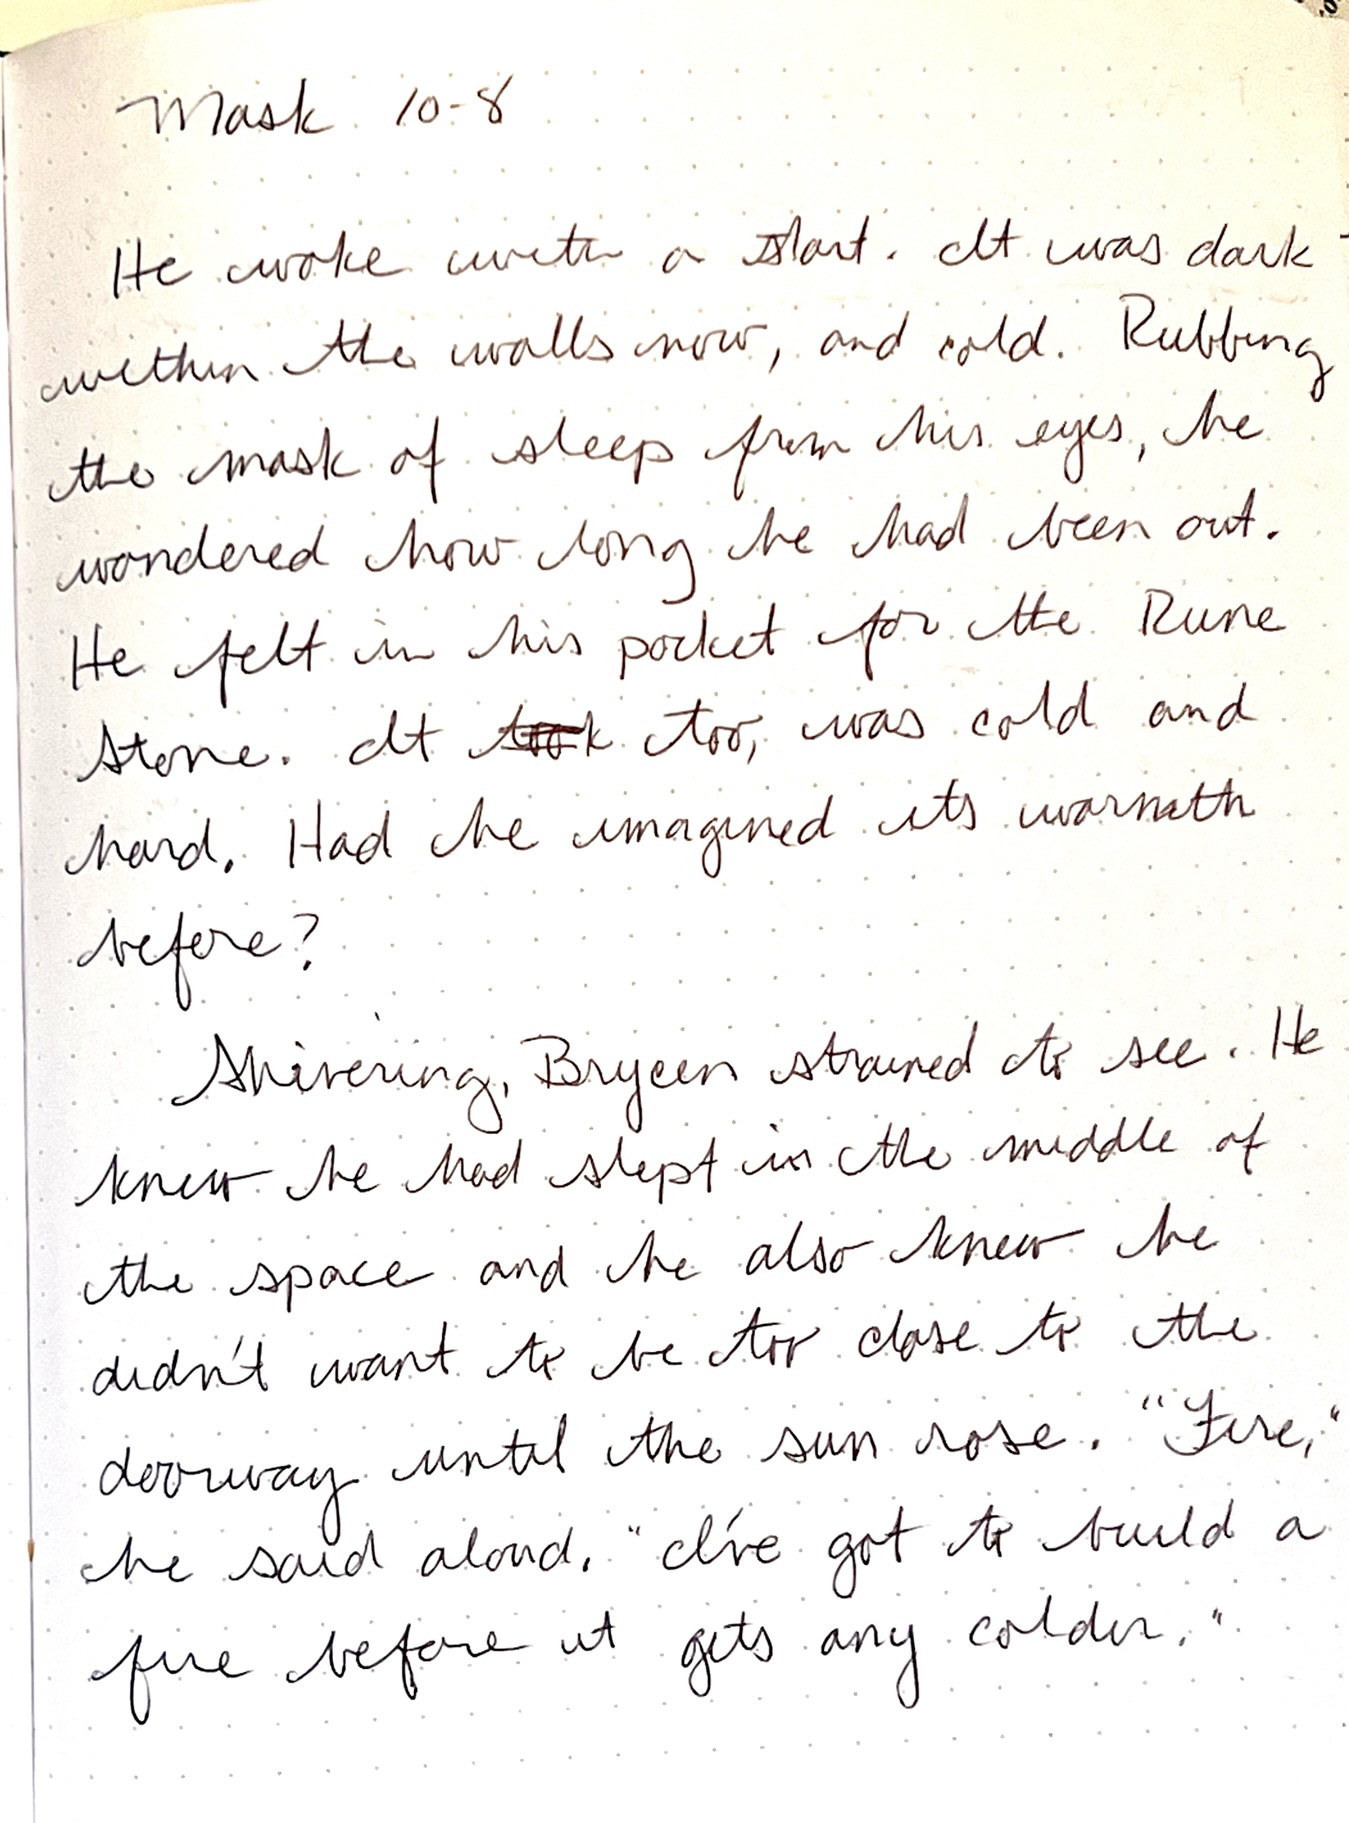 Mask 10-8
He woke with a start. It was dark
within the walls now, and cold. Rubbing
the mask of sleep from his eyes, he
wondered how long he had been out.
He felt in his pocket for the Rune
Stone. It took too, was cold and
hard. Had he imagined its warmth
before?
Shivering, Bryeen strained to see. He
knew he had slept in the middle of
the space and he also knew he
didn't want to be too close to the
doorway until the sun rose. "Fire,"
he said aloud. "I've got to build a
fire before it gets any colder."